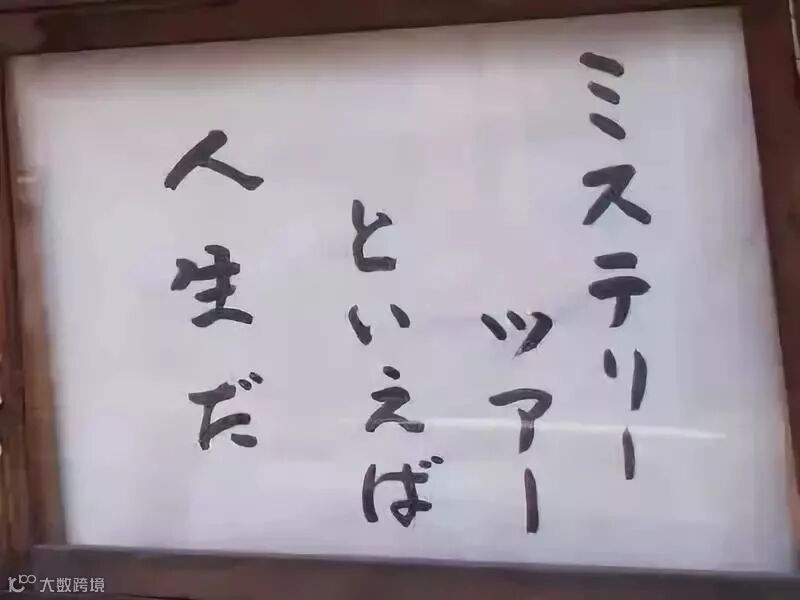 ミステリー
ツアー
といえば
人生だ
大数跨境